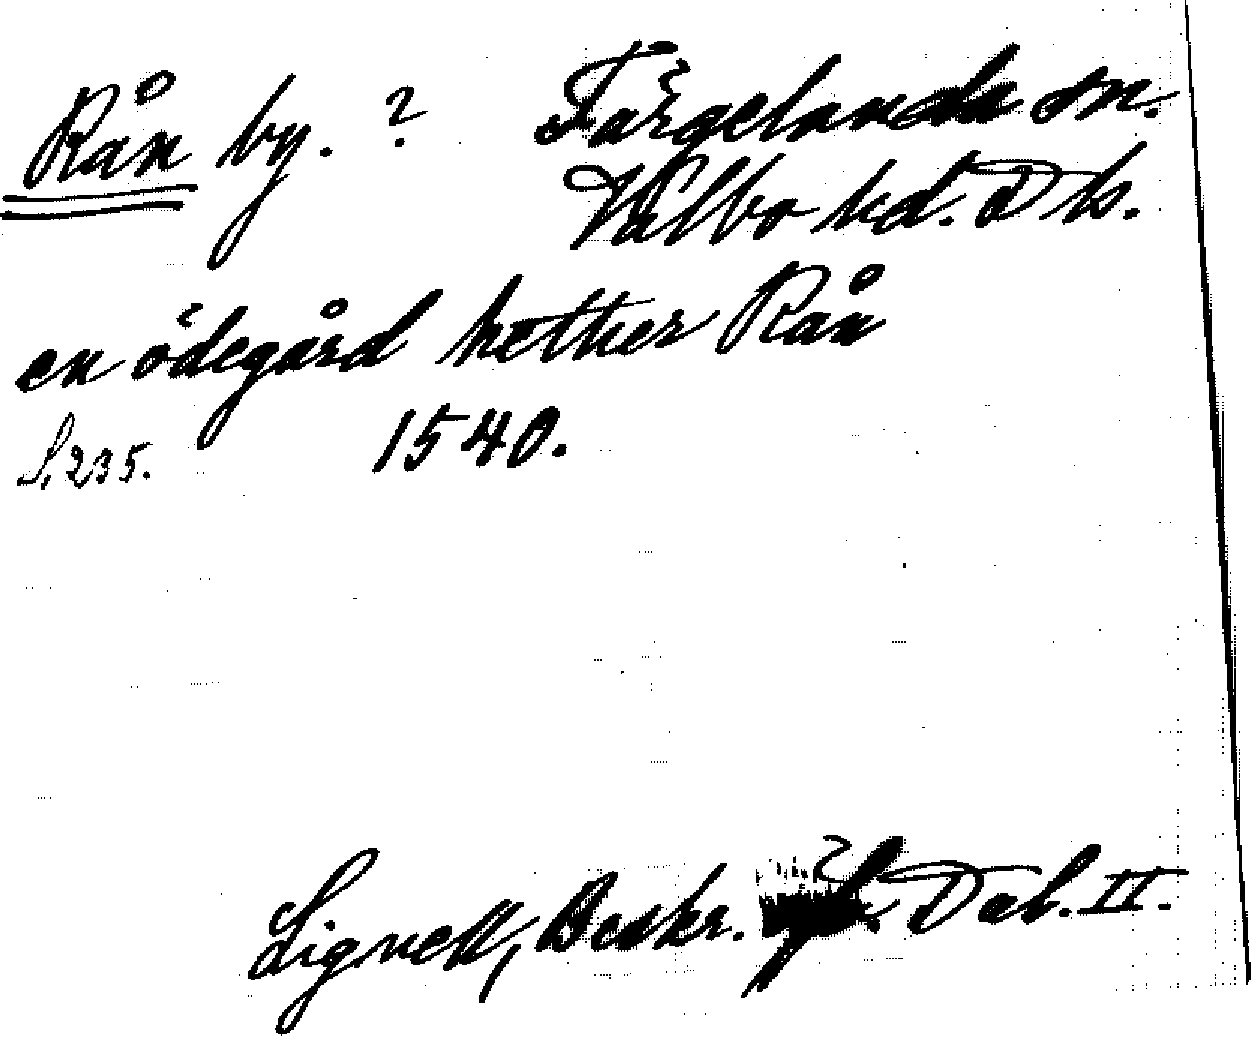 Rån by. ? Färgelanda sn.
Valbo hd. Ds.
en ödegård hether Rån
S. 235. 1540.
Lignell, Beskr. Dal. II.